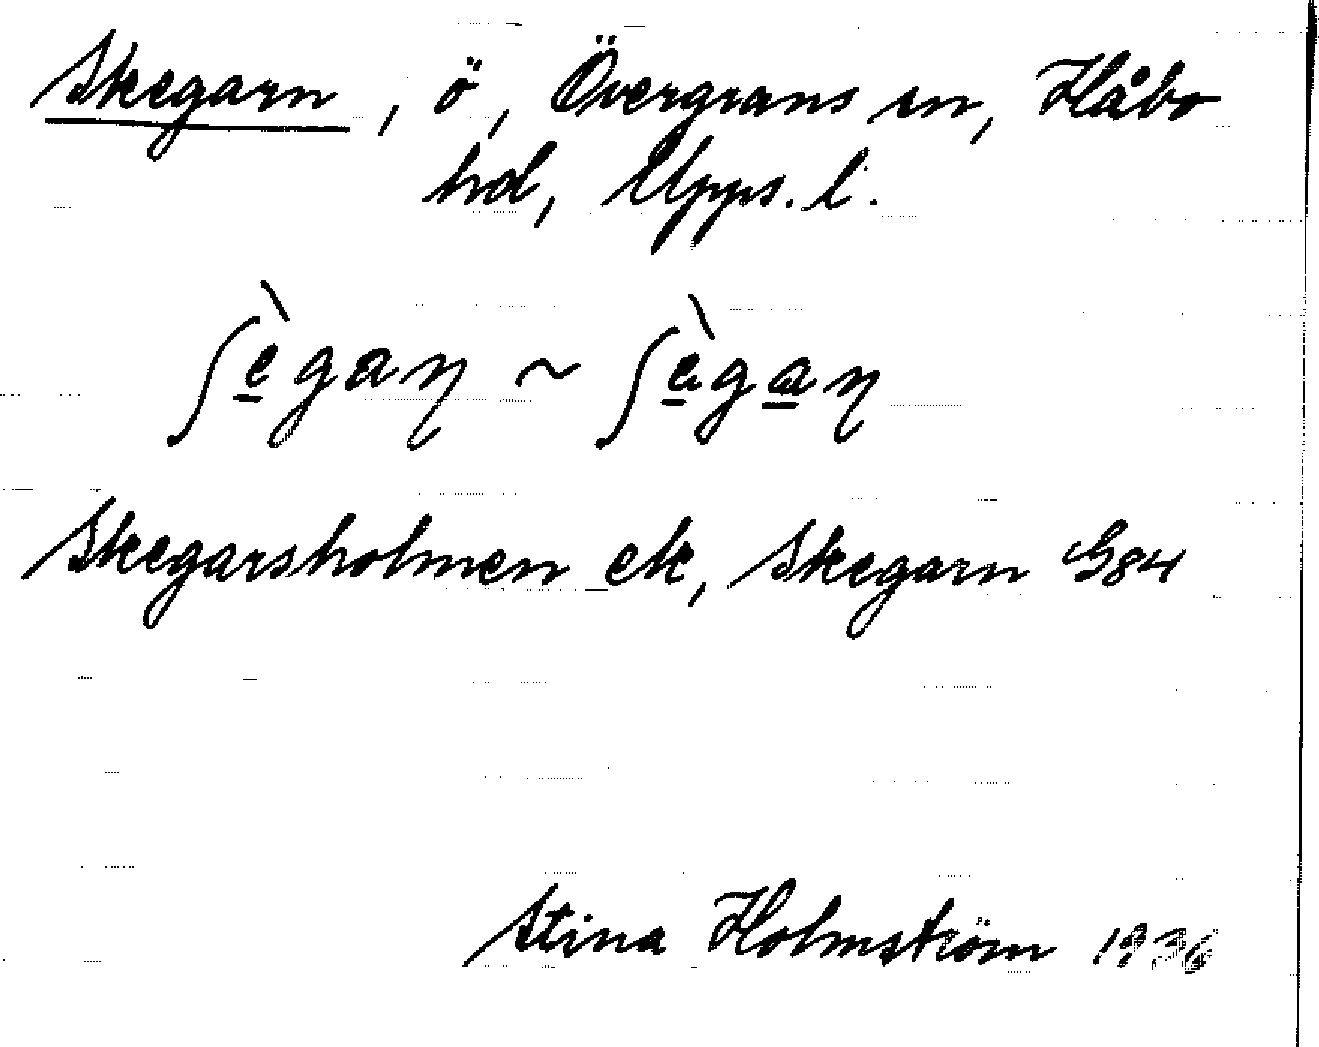 Skegarn, ö, Övergrans sn, Håbo
hd, Upps. l.
ʃè̠gaη ~ ʃè̠ga̠η
Skegarsholmen ek, Skegarn G84
Stina Holmström 1936